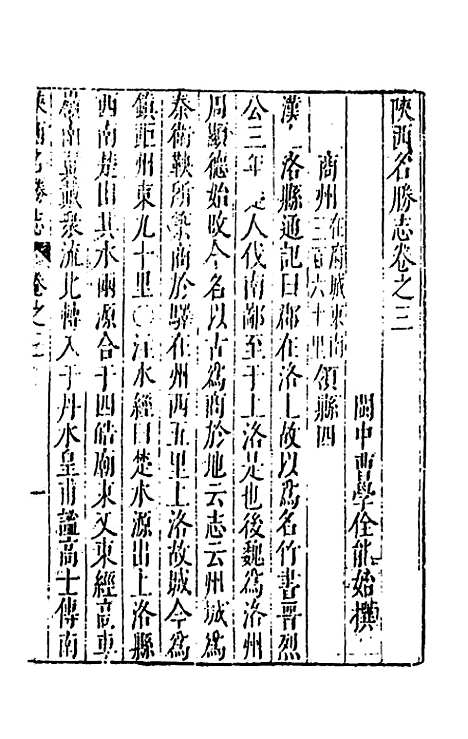 陝西名勝志卷之三
閩中曹學佺能始撰
商州在府城東南三百六十里領縣四
漢上洛縣通記曰郡在洛上故以爲名竹書晉烈
公三年楚人伐南鄙至于上洛是也後魏爲洛州
周顯德始改今名以古爲商於地云志云州城爲
秦衛鞅所築商於驛在州西五里上洛故城今爲
鎮距州東九十里〇注水經曰楚水源出上洛縣
西南楚山其水兩源合于四皓廟東又東經高車
嶺南翼帶衆流北轉入于丹水皇甫謐高士傳南
陝西名勝志 卷之三 一